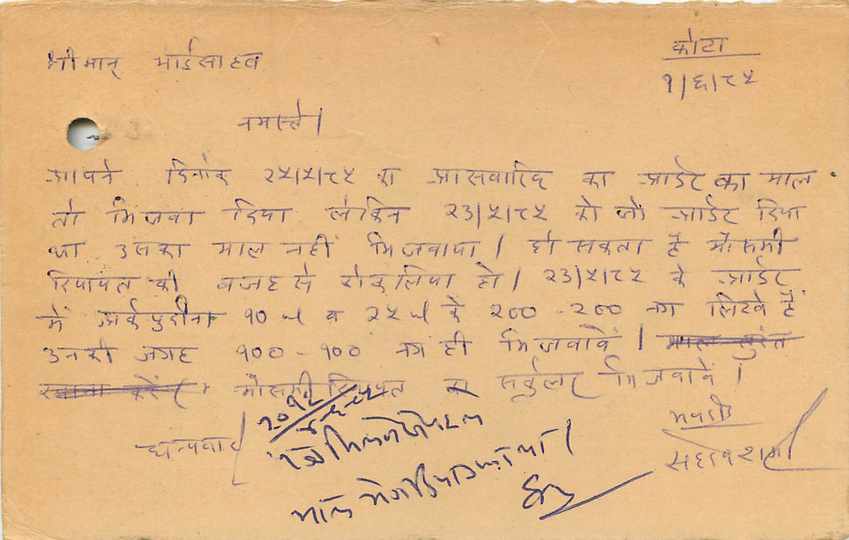 श्रीमान् भाईसाहब
कोटा
१/६/८५
नमस्ते।
आपने दिनांक २५/५/८५ का आसवारिष्ट का आर्डर का माल
तो भिजवा दिया लेकिन २३/५/८५ को जो आर्डर दिया
था उसका माल नहीं भिजवाया। हो सकता है मौसमी
रियायत की वजह से रोक लिया हो। २३/५/८५ के आर्डर
में अर्क पुदीना १० ml व २५ ml के २०० - २०० नग लिखे हैं
उनकी जगह १०० - १०० नग ही भिजवावें। माल तुरंत
रवाना करें। मौसमी रियायत का सर्कुलर भिजवावें।
धन्यवाद
भवदीय
माल भेज दिया